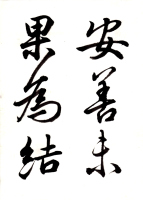 安善未
果為結